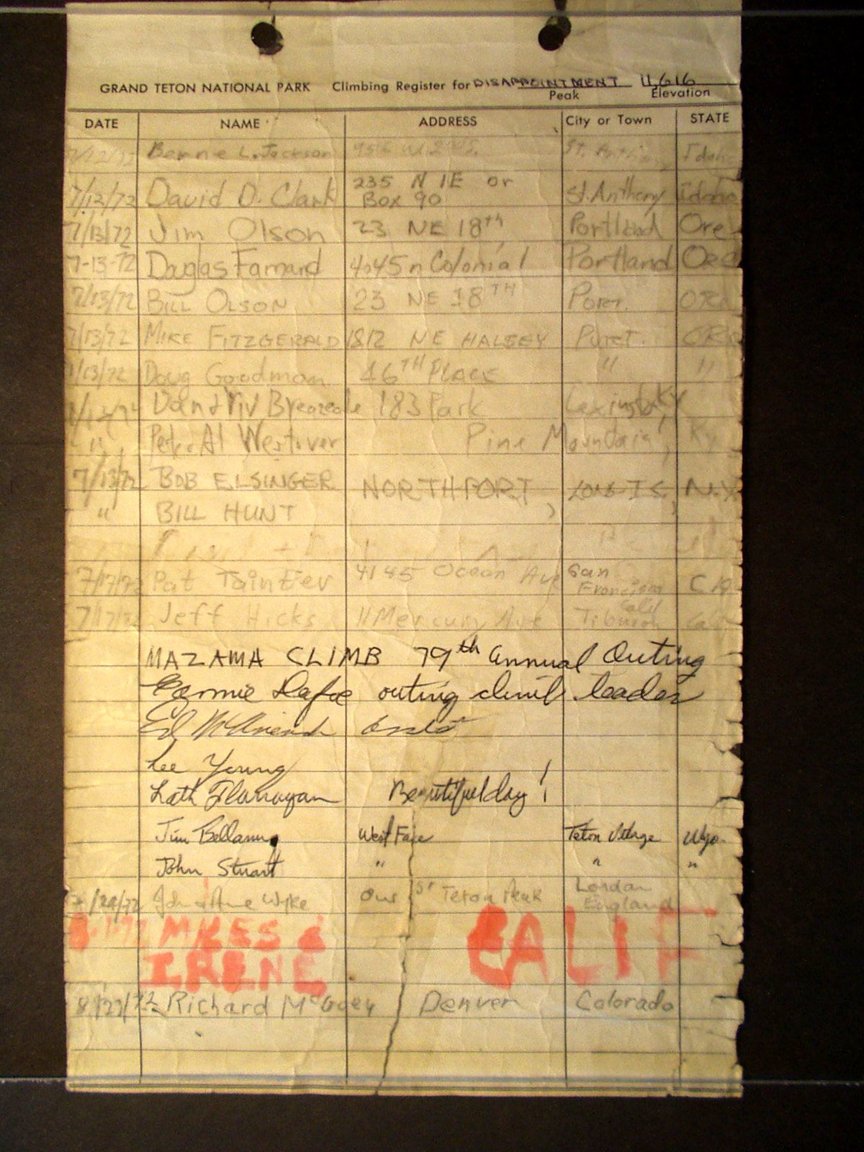 GRAND TETON NATIONAL PARK Climbing Register for DISAPPOINTMENT 11,616
Peak Elevation
DATE NAME ADDRESS City or Town STATE
Bernie L. Jackson St. Anthony Idaho
7/12/72 David D. Clark 235 N 1E or Box 90 St. Anthony Idaho
7/13/72 Jim Olson 23 NE 18th Portland Ore
7-13-72 Douglas Farnard 4045 n Colonial Portland Ore
7/13/72 BILL OLSON 23 NE 18TH PORT. ORE
7/13/72 MIKE FITZGERALD 1812 NE HALSEY PORT. ORE
7/13/72 Doug Goodman 46TH PLACE " "
183 Park Lexington Ky
" Al Westover Pine Mountain, Ky
7/13/72 BOB ELSINGER NORTHPORT LONG IS. N.Y.
" BILL HUNT
7/17/72 Pat Taintter 4145 Ocean Ave San Francisco CA
7/17/72 Jeff Hicks 11 Mercury Ave Tiburon Calif
MAZAMA CLIMB 79th Annual Outing
outing climb leader
Ed
Lee Young
Flanagan Beautiful day!
Jim Bellamy West Face Teton Village Wyo.
John Stuart " " "
/72 Wyke Our 1st Teton Peak London England
MKES & CALIF
IRENE
Richard McGoey Denver Colorado